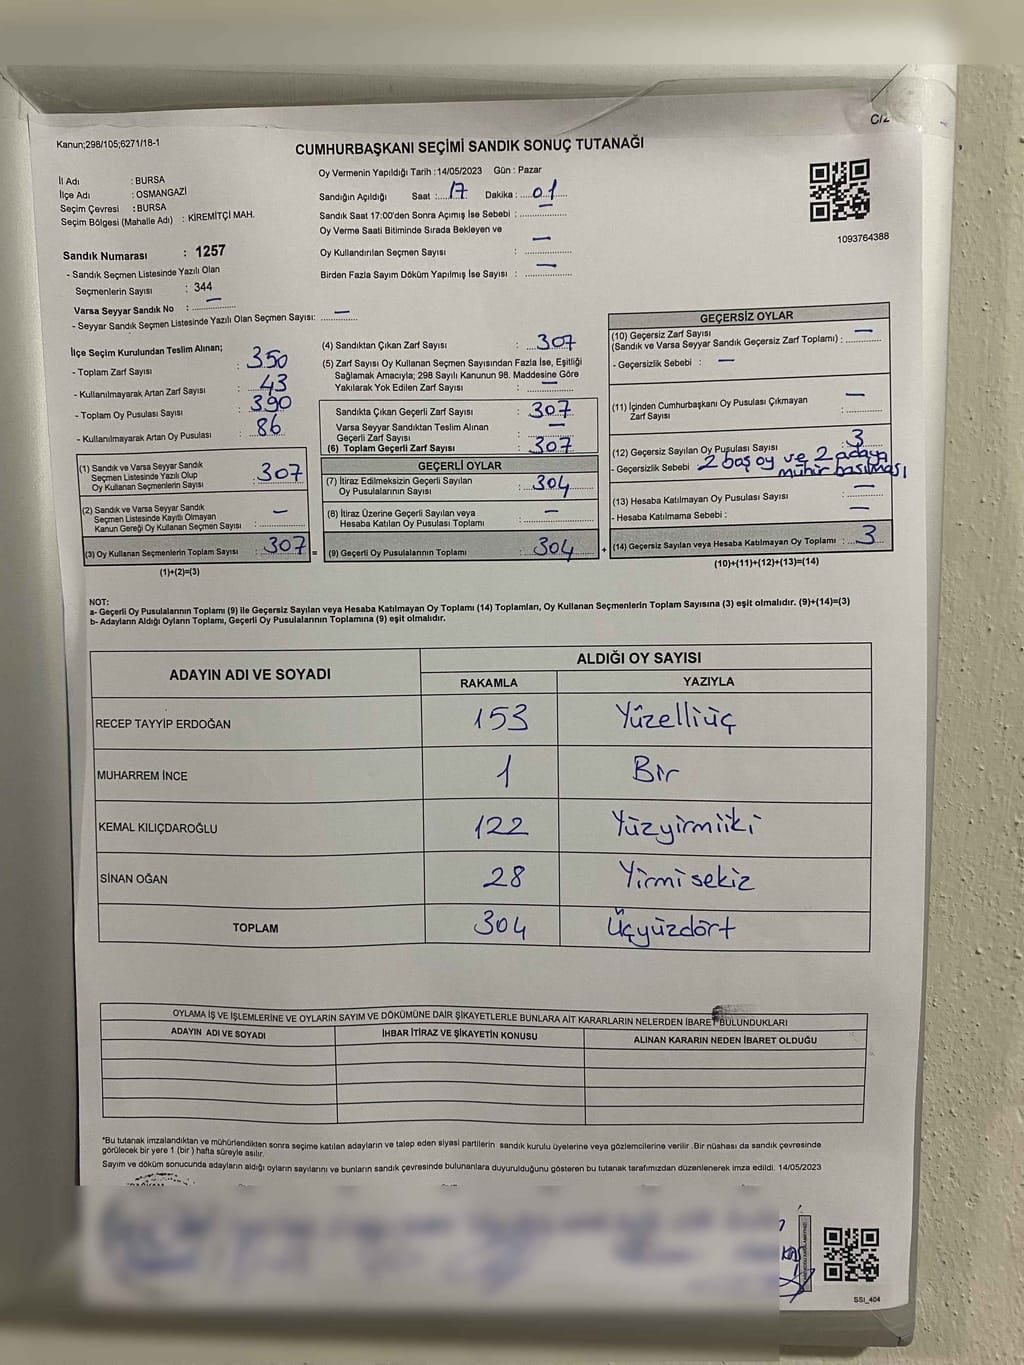 C/2
Kanun;298/105;6271/18-1
CUMHURBAŞKANI SEÇİMİ SANDIK SONUÇ TUTANAĞI
İl Adı : BURSA
İlçe Adı : OSMANGAZİ
Seçim Çevresi : BURSA
Seçim Bölgesi (Mahalle Adı) : KİREMİTÇİ MAH.
Sandık Numarası : 1257
- Sandık Seçmen Listesinde Yazılı Olan
Seçmenlerin Sayısı : 344
Varsa Seyyar Sandık No : —
- Seyyar Sandık Seçmen Listesinde Yazılı Olan Seçmen Sayısı: —
Oy Vermenin Yapıldığı Tarih :14/05/2023 Gün : Pazar
Sandığın Açıldığı Saat : 17 Dakika : 01
Sandık Saat 17:00'den Sonra Açımış İse Sebebi : —
Oy Verme Saati Bitiminde Sırada Bekleyen ve
Oy Kullandırılan Seçmen Sayısı : —
Birden Fazla Sayım Döküm Yapılmış İse Sayısı : —
1093764388
İlçe Seçim Kurulundan Teslim Alınan;
- Toplam Zarf Sayısı : 350
- Kullanılmayarak Artan Zarf Sayısı : 43
- Toplam Oy Pusulası Sayısı : 390
- Kullanılmayarak Artan Oy Pusulası : 86
(1) Sandık ve Varsa Seyyar Sandık
Seçmen Listesinde Yazılı Olup
Oy Kullanan Seçmenlerin Sayısı : 307
(2) Sandık ve Varsa Seyyar Sandık
Seçmen Listesinde Kayıtlı Olmayan
Kanun Gereği Oy Kullanan Seçmen Sayısı : —
(3) Oy Kullanan Seçmenlerin Toplam Sayısı : 307 =
(1)+(2)=(3)
(4) Sandıktan Çıkan Zarf Sayısı : 307
(5) Zarf Sayısı Oy Kullanan Seçmen Sayısından Fazla İse, Eşitliği
Sağlamak Amacıyla; 298 Sayılı Kanunun 98. Maddesine Göre
Yakılarak Yok Edilen Zarf Sayısı : —
Sandıkta Çıkan Geçerli Zarf Sayısı : 307
Varsa Seyyar Sandıktan Teslim Alınan
Geçerli Zarf Sayısı : —
(6) Toplam Geçerli Zarf Sayısı : 307
GEÇERLİ OYLAR
(7) İtiraz Edilmeksizin Geçerli Sayılan
Oy Pusulalarının Sayısı : 304
(8) İtiraz Üzerine Geçerli Sayılan veya
Hesaba Katılan Oy Pusulası Toplamı : —
(9) Geçerli Oy Pusulalarının Toplamı : 304 +
GEÇERSİZ OYLAR
(10) Geçersiz Zarf Sayısı
(Sandık ve Varsa Seyyar Sandık Geçersiz Zarf Toplamı) : —
- Geçersizlik Sebebi : —
(11) İçinden Cumhurbaşkanı Oy Pusulası Çıkmayan
Zarf Sayısı : —
(12) Geçersiz Sayılan Oy Pusulası Sayısı : 3
- Geçersizlik Sebebi 2 boş oy ve 2 adaya
mühir basılması
(13) Hesaba Katılmayan Oy Pusulası Sayısı : —
- Hesaba Katılmama Sebebi : —
(14) Geçersiz Sayılan veya Hesaba Katılmayan Oy Toplamı : 3
(10)+(11)+(12)+(13)=(14)
NOT:
a- Geçerli Oy Pusulalarının Toplamı (9) ile Geçersiz Sayılan veya Hesaba Katılmayan Oy Toplamı (14) Toplamları, Oy Kullanan Seçmenlerin Toplam Sayısına (3) eşit olmalıdır. (9)+(14)=(3)
b- Adayların Aldığı Oyların Toplamı, Geçerli Oy Pusulalarının Toplamına (9) eşit olmalıdır.
ADAYIN ADI VE SOYADI ALDIĞI OY SAYISI
RAKAMLA YAZIYLA
RECEP TAYYİP ERDOĞAN 153 Yüzelliüç
MUHARREM İNCE 1 Bir
KEMAL KILIÇDAROĞLU 122 Yüzyirmiiki
SİNAN OĞAN 28 Yirmisekiz
TOPLAM 304 Üçyüzdört
OYLAMA İŞ VE İŞLEMLERİNE VE OYLARIN SAYIM VE DÖKÜMÜNE DAİR ŞİKAYETLERLE BUNLARA AİT KARARLARIN NELERDEN İBARET BULUNDUKLARI
ADAYIN ADI VE SOYADI İHBAR İTİRAZ VE ŞİKAYETİN KONUSU ALINAN KARARIN NEDEN İBARET OLDUĞU
*Bu tutanak imzalandıktan ve mühürlendikten sonra seçime katılan adayların ve talep eden siyasi partilerin sandık kurulu üyelerine veya gözlemcilerine verilir .Bir nüshası da sandık çevresinde
görülecek bir yere 1 (bir ) hafta süreyle asılır.
Sayım ve döküm sonucunda adayların aldığı oyların sayılarını ve bunların sandık çevresinde bulunanlara duyurulduğunu gösteren bu tutanak tarafımızdan düzenlenerek imza edildi. 14/05/2023
SSI_404